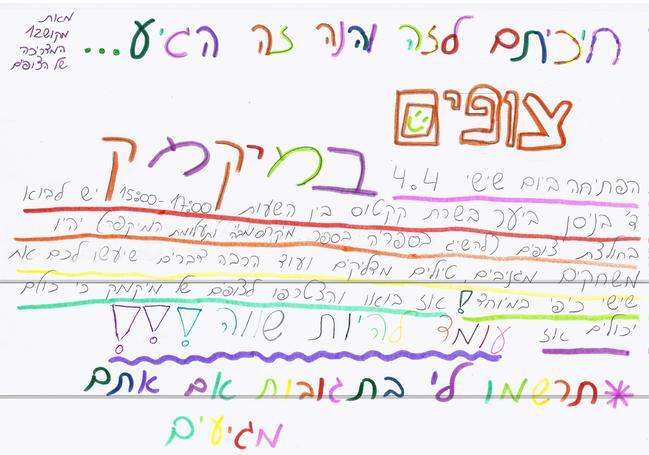 מאת
מקושן12
המדריכה
של הצופים
חיכיתם לזה והנה זה הגיע...
צופים
במיקמק
הפתיחה ביום שישי 4.4
ד' בניסן ביער בשרת קקטוס בין השעות 15:00-17:00 יש לבוא
בחולצת צופים (להשיג בספריה בספר מקהסמבה ותעלומת המיקפט) יהיו
משחקים מגניבים, טיולים מדליקים ועוד הרבה דברים שיעשו לכם את
שישי כיפי במיוחד! אז בואו והצטרפו לצופים של מיקמק כי כולם
יכולים אז
עומד להיות שווה !!!
*תרשמו לי בתגובות אם אתם
מגיעים